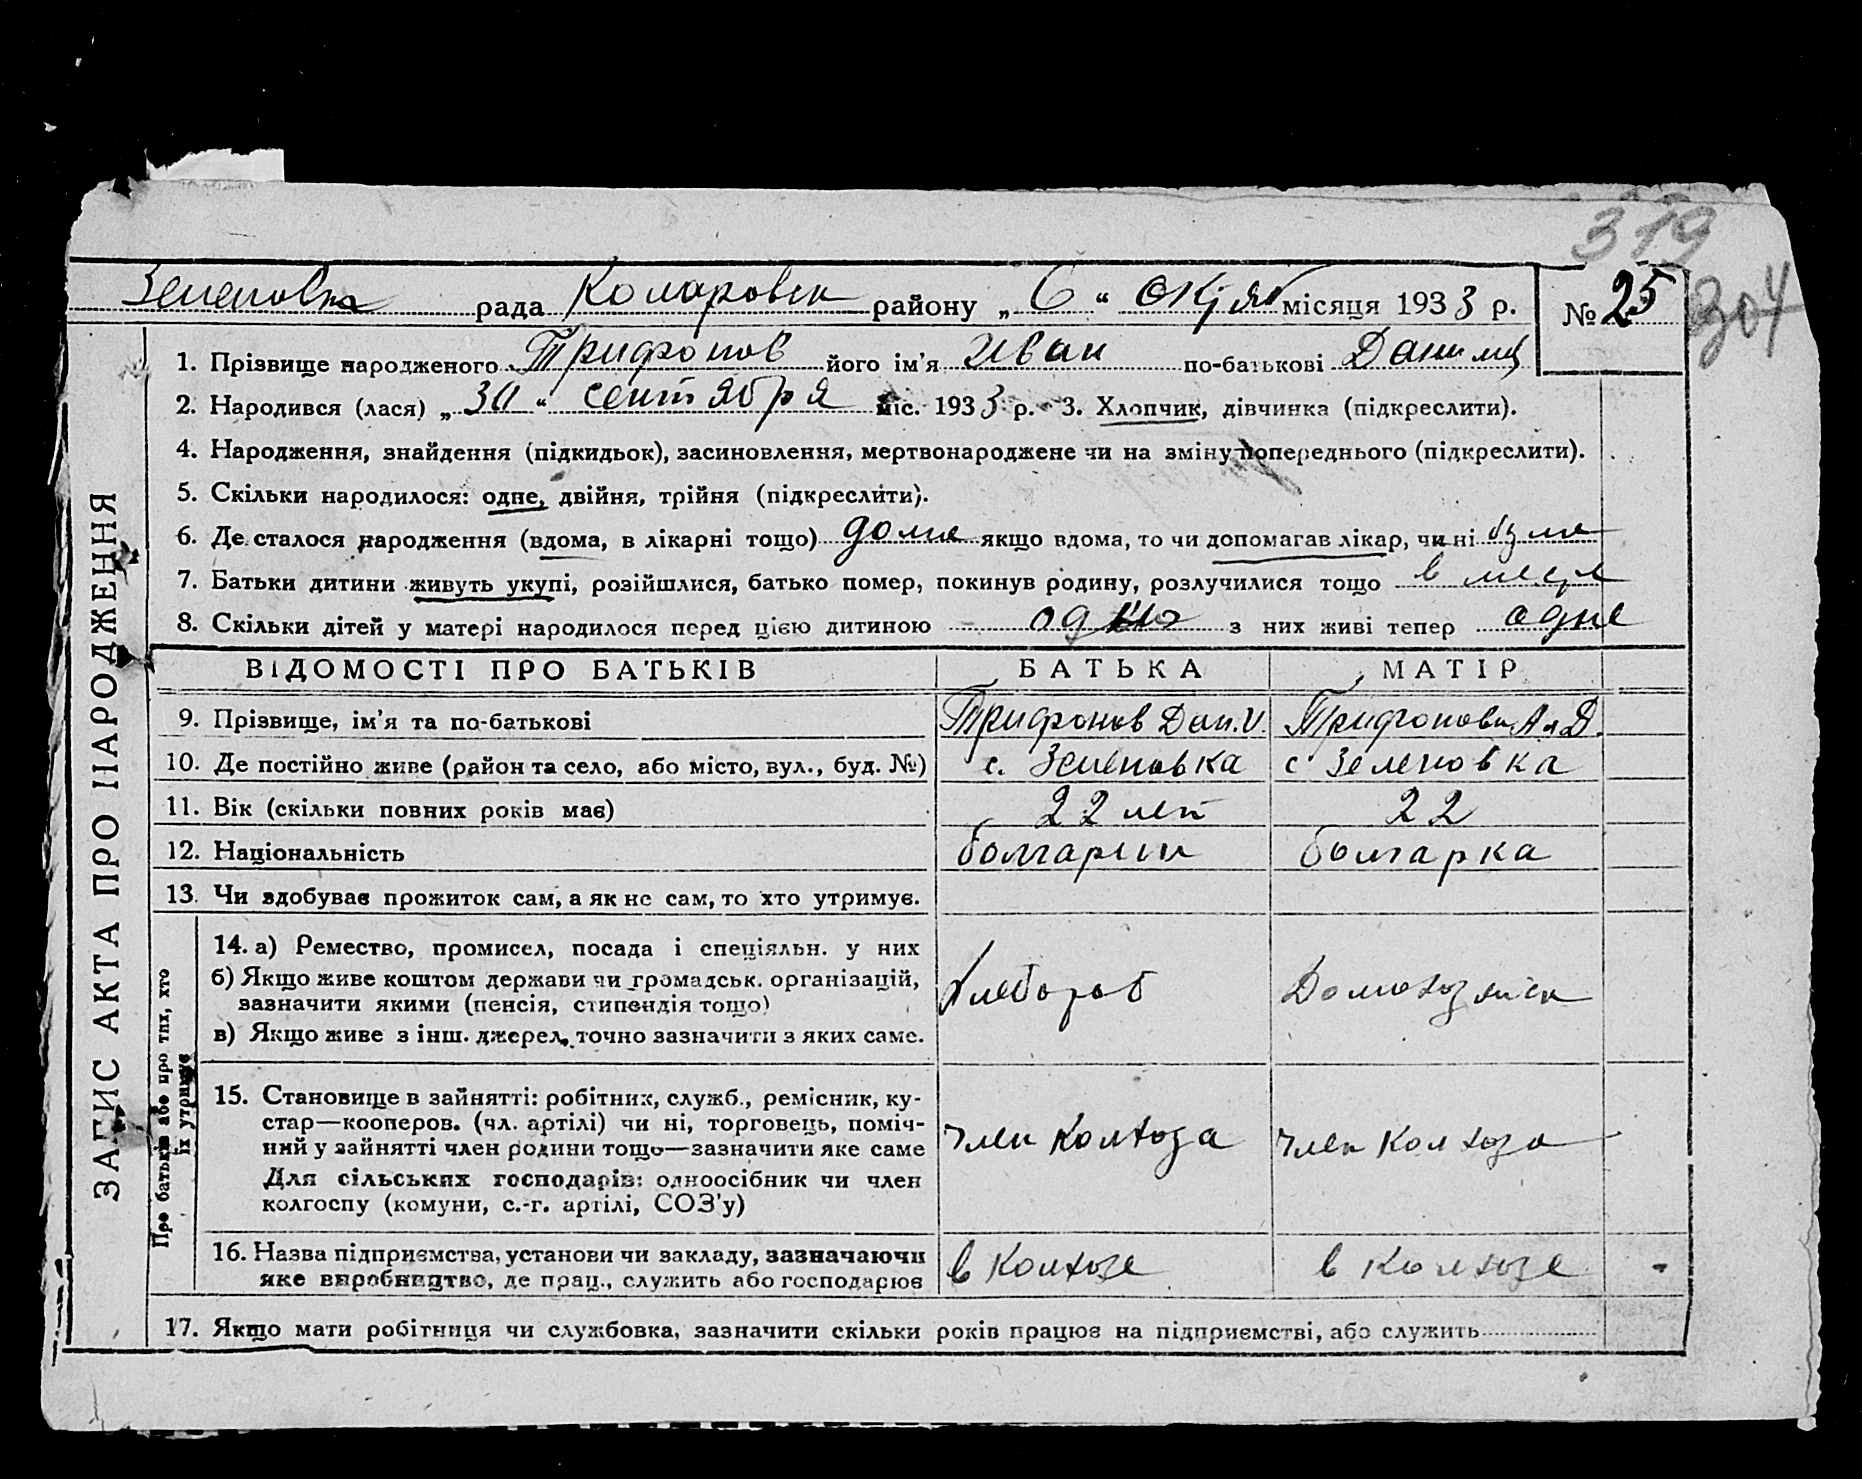 319
Зеленовка рада Коларовск району „ 6 “ октяб місяця 1933 р. № 25
304
1. Прізвище народженого Трифонов його ім’я Иван по-батькові Данилов
2. Народився (лася) „ 30 “ сентября міс. 1933 р. 3. Хлопчик, дівчинка (підкреслити).
4. Народження, знайдення (підкидьок), засиновлення, мертвонароджене чи на зміну попереднього (підкреслити).
5. Скільки народилося: одне, двійня, трійня (підкреслити).
6. Де сталося народження (вдома, в лікарні тощо) дома якщо вдома, то чи допомагав лікар, чи ні
7. Батьки дитини живуть укупі, розійшлися, батько помер, покинув родину, розлучилися тощо в месте
8. Скільки дітей у матері народилося перед цією дитиною одно з них живі тепер одне
ВІДОМОСТІ ПРО БАТЬКІВ БАТЬКА МАТІР
9. Прізвище, ім’я та по-батькові Трифонов Дан. И. Трифонова Ан Д.
10. Де постійно живе (район та село, або місто, вул., буд. №) с. Зеленовка с Зеленовка
11. Вік (скільки повних років має) 22 лет 22
12. Національність болгарин болгарка
13. Чи здобуває прожиток сам, а як не сам, то хто утримує.
14. а) Ремество, промисел, посада і спеціяльн. у них
б) Якщо живе коштом держави чи громадськ. організацій,
зазначити якими (пенсія, стипендія тощо)
хлебороб Домохозяйка
в) Якщо живе з інш. джерел, точно зазначити з яких саме.
15. Становище в зайнятті: робітник, служб., ремісник, ку-
стар—кооперов. (чл. артілі) чи ні, торговець, поміч-
ний у зайнятті член родини тощо—зазначити яке саме
член колхоза член колхоза
Для сільських господарів: одноосібник чи член
колгоспу (комуни, с.-г. артілі, СОЗ’у)
16. Назва підприємства, установи чи закладу, зазначаючи
яке виробництво, де прац., служить або господарює
в колхозе в колхозе
17. Якщо мати робітниця чи службовка, зазначити скільки років працює на підприємстві, або служить
ЗАПИС АКТА ПРО НАРОДЖЕННЯ
Про батьків або про тих, хто
їх утримує